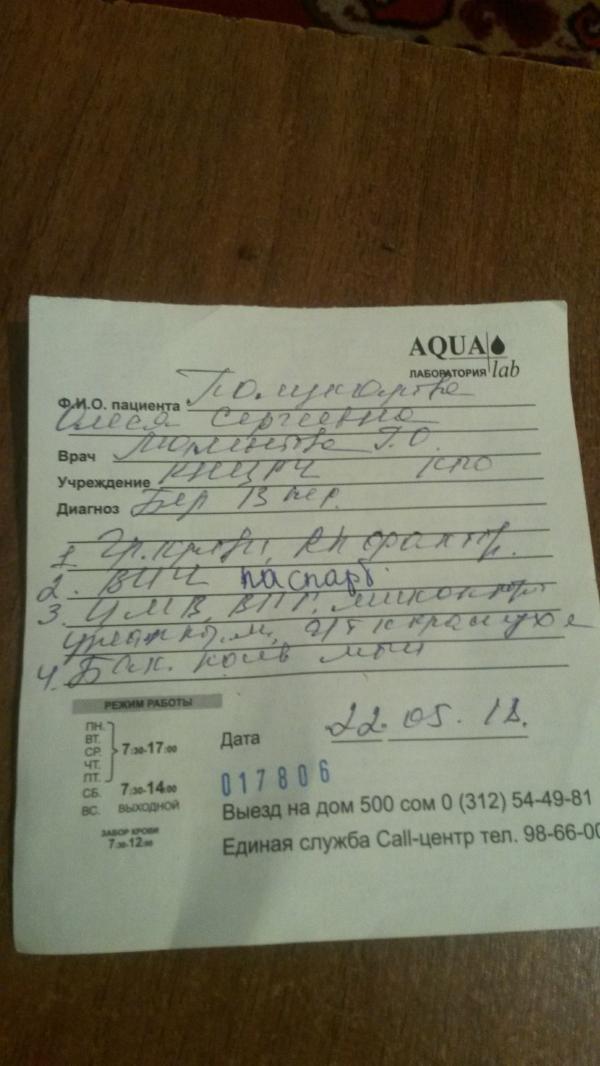 AQUA lab
ЛАБОРАТОРИЯ
Ф.И.О. пациента
Олеся Сергеевна
Врач
Учреждение
Диагноз Бер
1. Гр. крови, Rh фактор.
2. ВИЧ паспорт
3. ЦМВ, ВПГ,
уреаплазм, Ат к краснухе
4. Бак. посев мочи
РЕЖИМ РАБОТЫ
ПН.
ВТ.
СР. 7:30-17:00
ЧТ.
ПТ.
СБ. 7:30-14:00
ВС. ВЫХОДНОЙ
ЗАБОР КРОВИ
7:30-12:00
Дата 22.05.18.
017806
Выезд на дом 500 сом 0 (312) 54-49-81
Единая служба Call-центр тел. 98-66-00